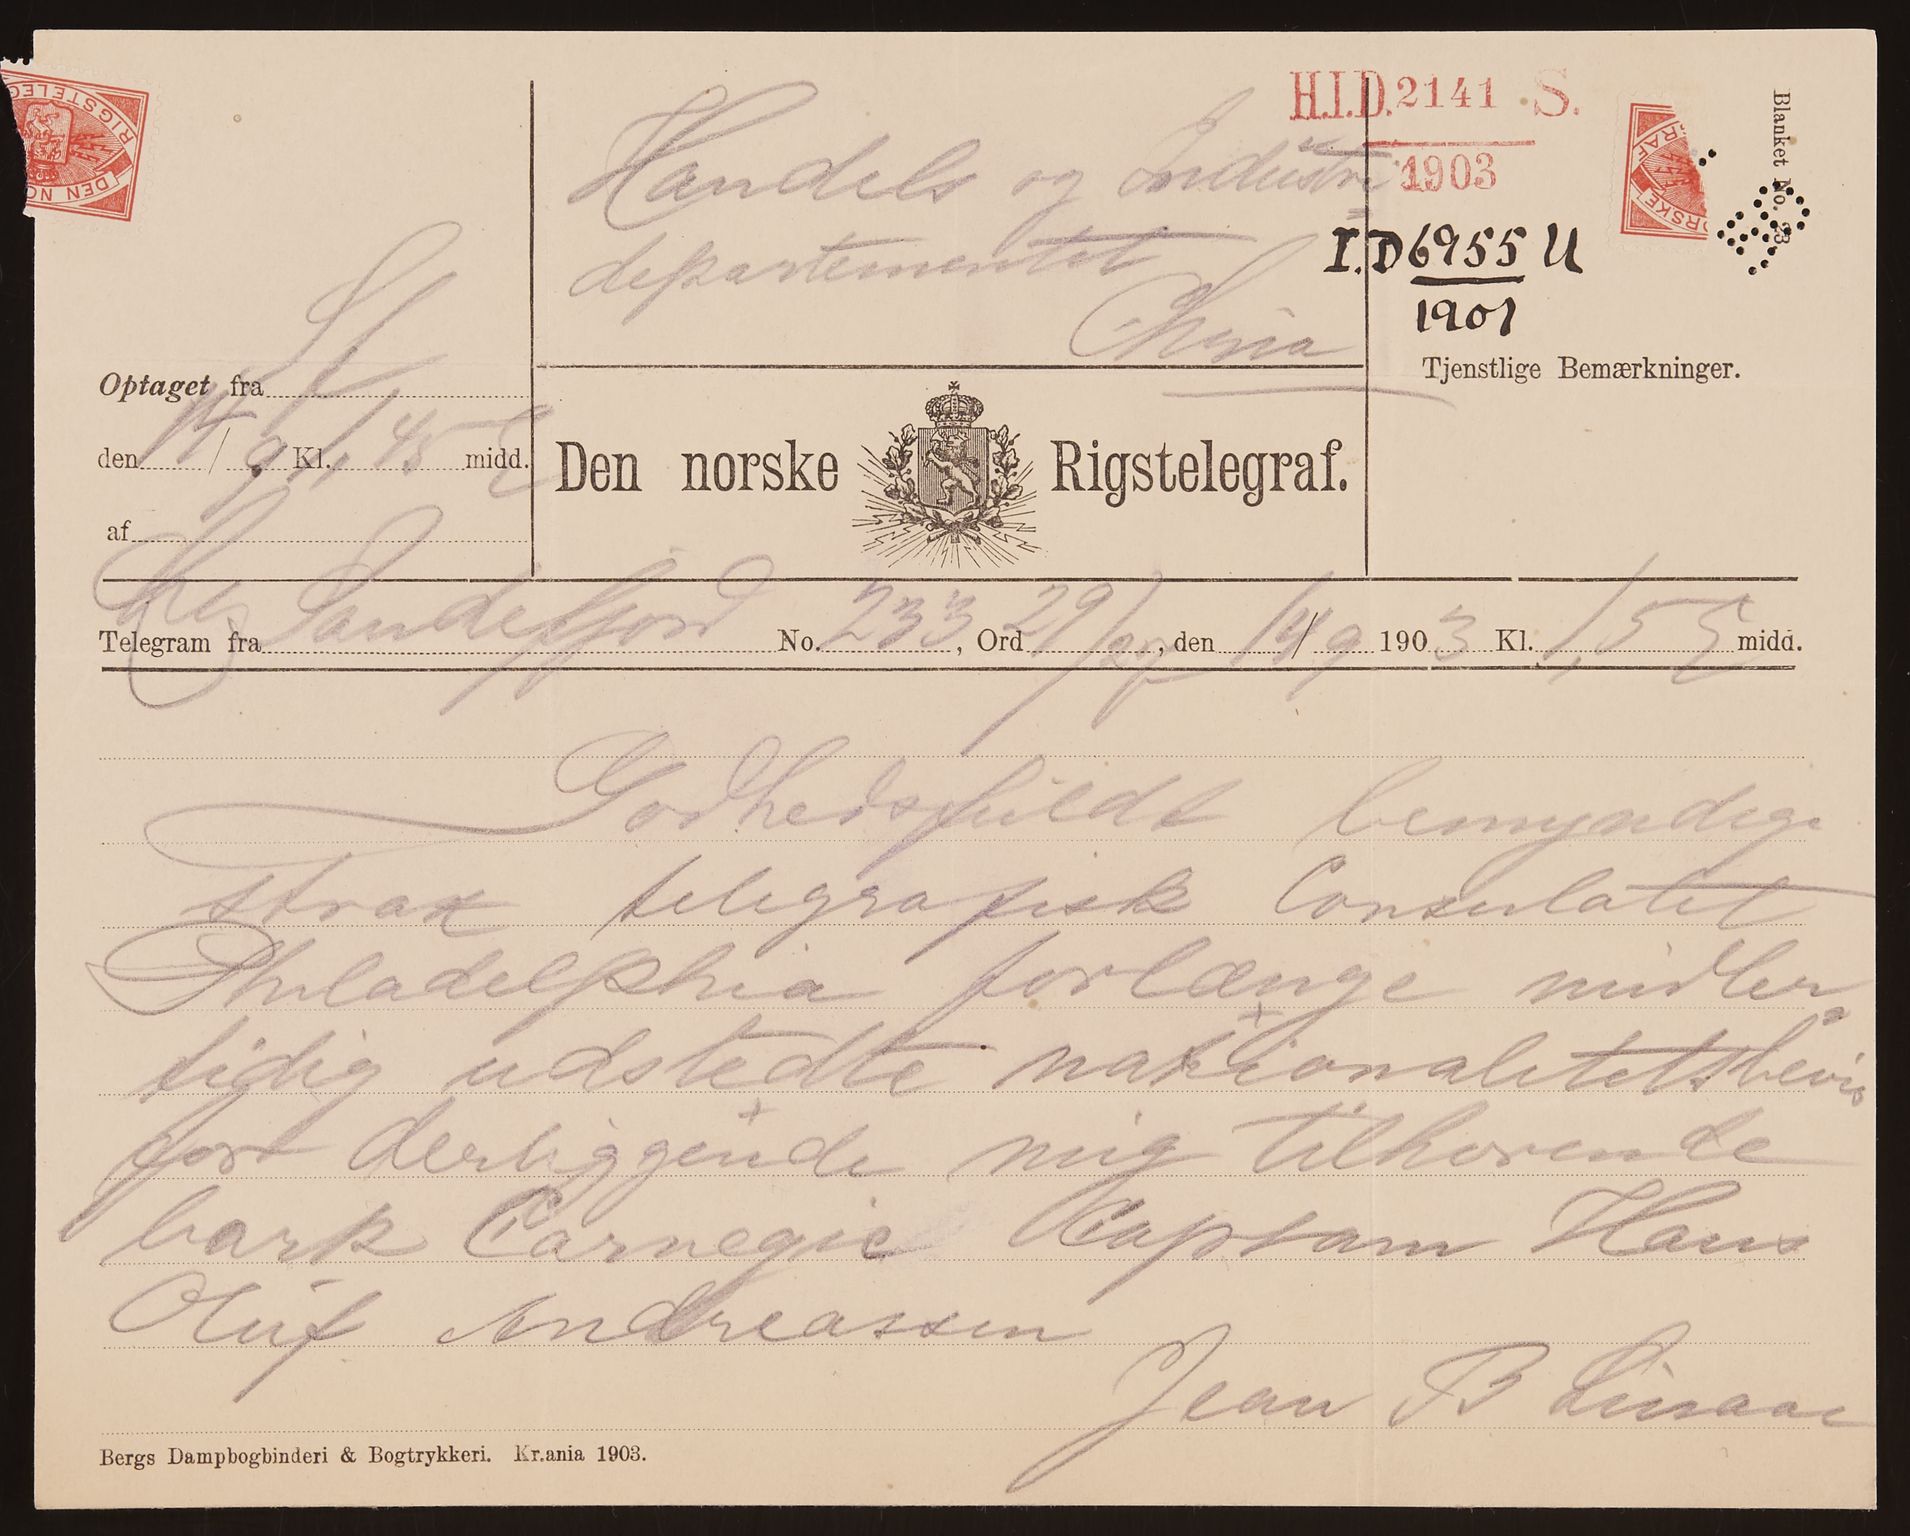 H.I.D. 2141 S.
1903
I.D 6955 U
1901
Blanket No. 23.
Handels og Industri
departementet
Chr.nia
Tjenstlige Bemærkninger.
Optaget fra Sf
den 14/9 Kl. 1,45 E midd.
af
Den norske Rigstelegraf.
Telegram fra Sandefjord No. 233, Ord 29/27, den 14/9 1903 Kl. 1,55 E midd.
Godhedsfuldt bemyndige
strax telegrafisk Consulatet
Philadelphia forlænge midler
tidig udstedte nationalitetsbevis
fort derliggende mig tilhørende
bark Carnegie Captam Hans
Oluf Andreassen
Jean B Linaae
Bergs Dampbogbinderi & Bogtrykkeri. Kr.ania 1903.